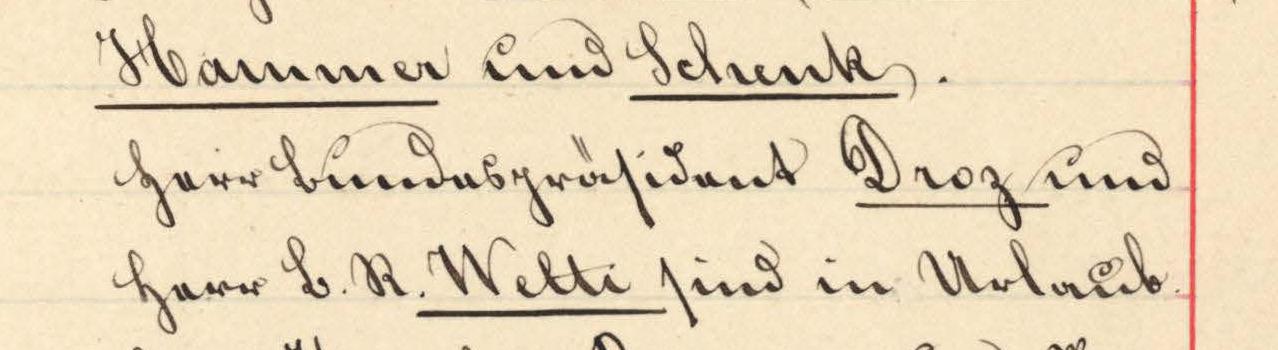 Hammer und Schenk.
Herr Bundespräsident Droz und
Herr B. R. Welti sind in Urlaub.